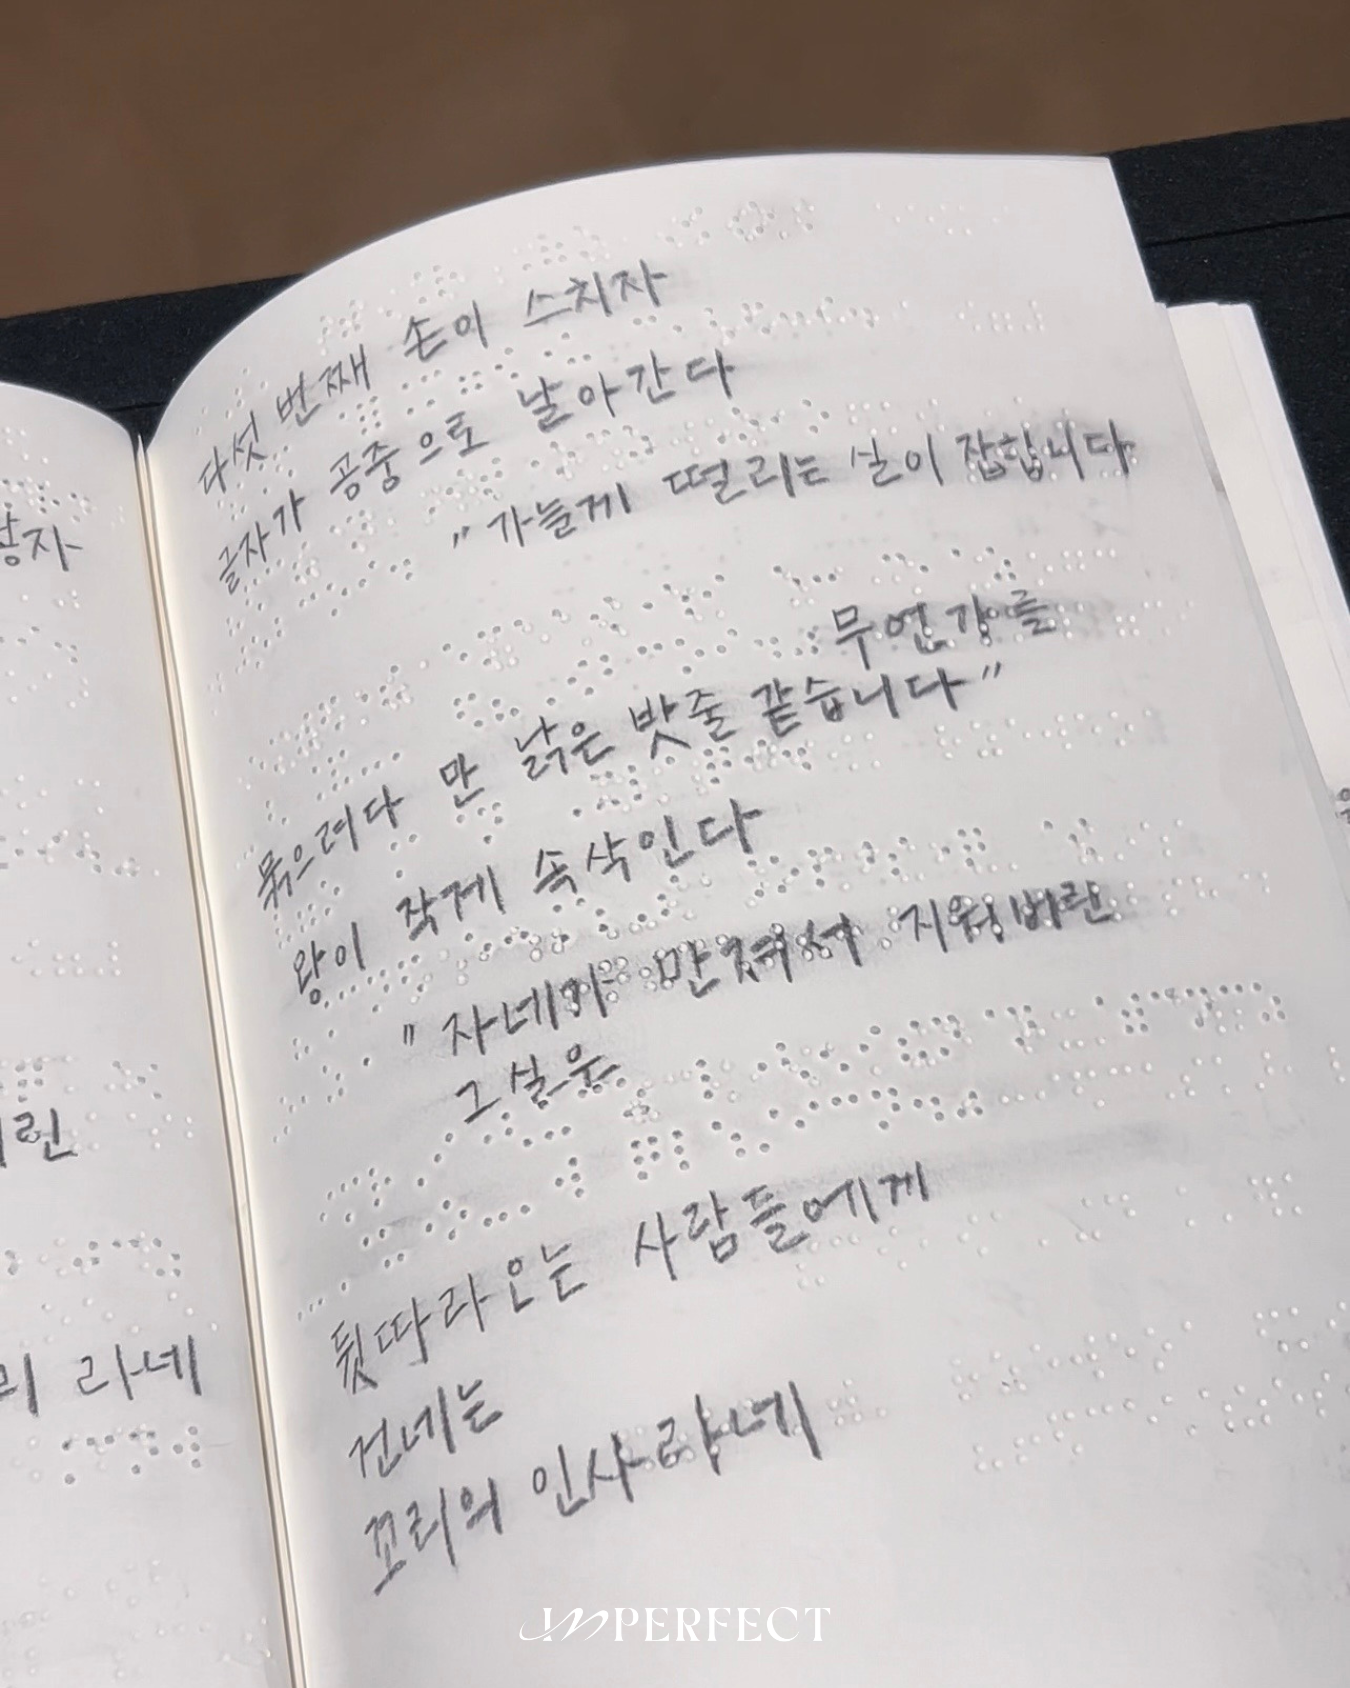 다섯 번째 손이 스치자
글자가 공중으로 날아간다
"가늘게 떨리는 실이 잡힙니다
무언가를
묶으려다 만 낡은 밧줄 같습니다"
왕이 작게 속삭인다
"자네가 만져서 지워버린
그 실은
뒷따라오는 사람들에게
건네는
꼬리의 인사라네
린
리 라네
IMPERFECT